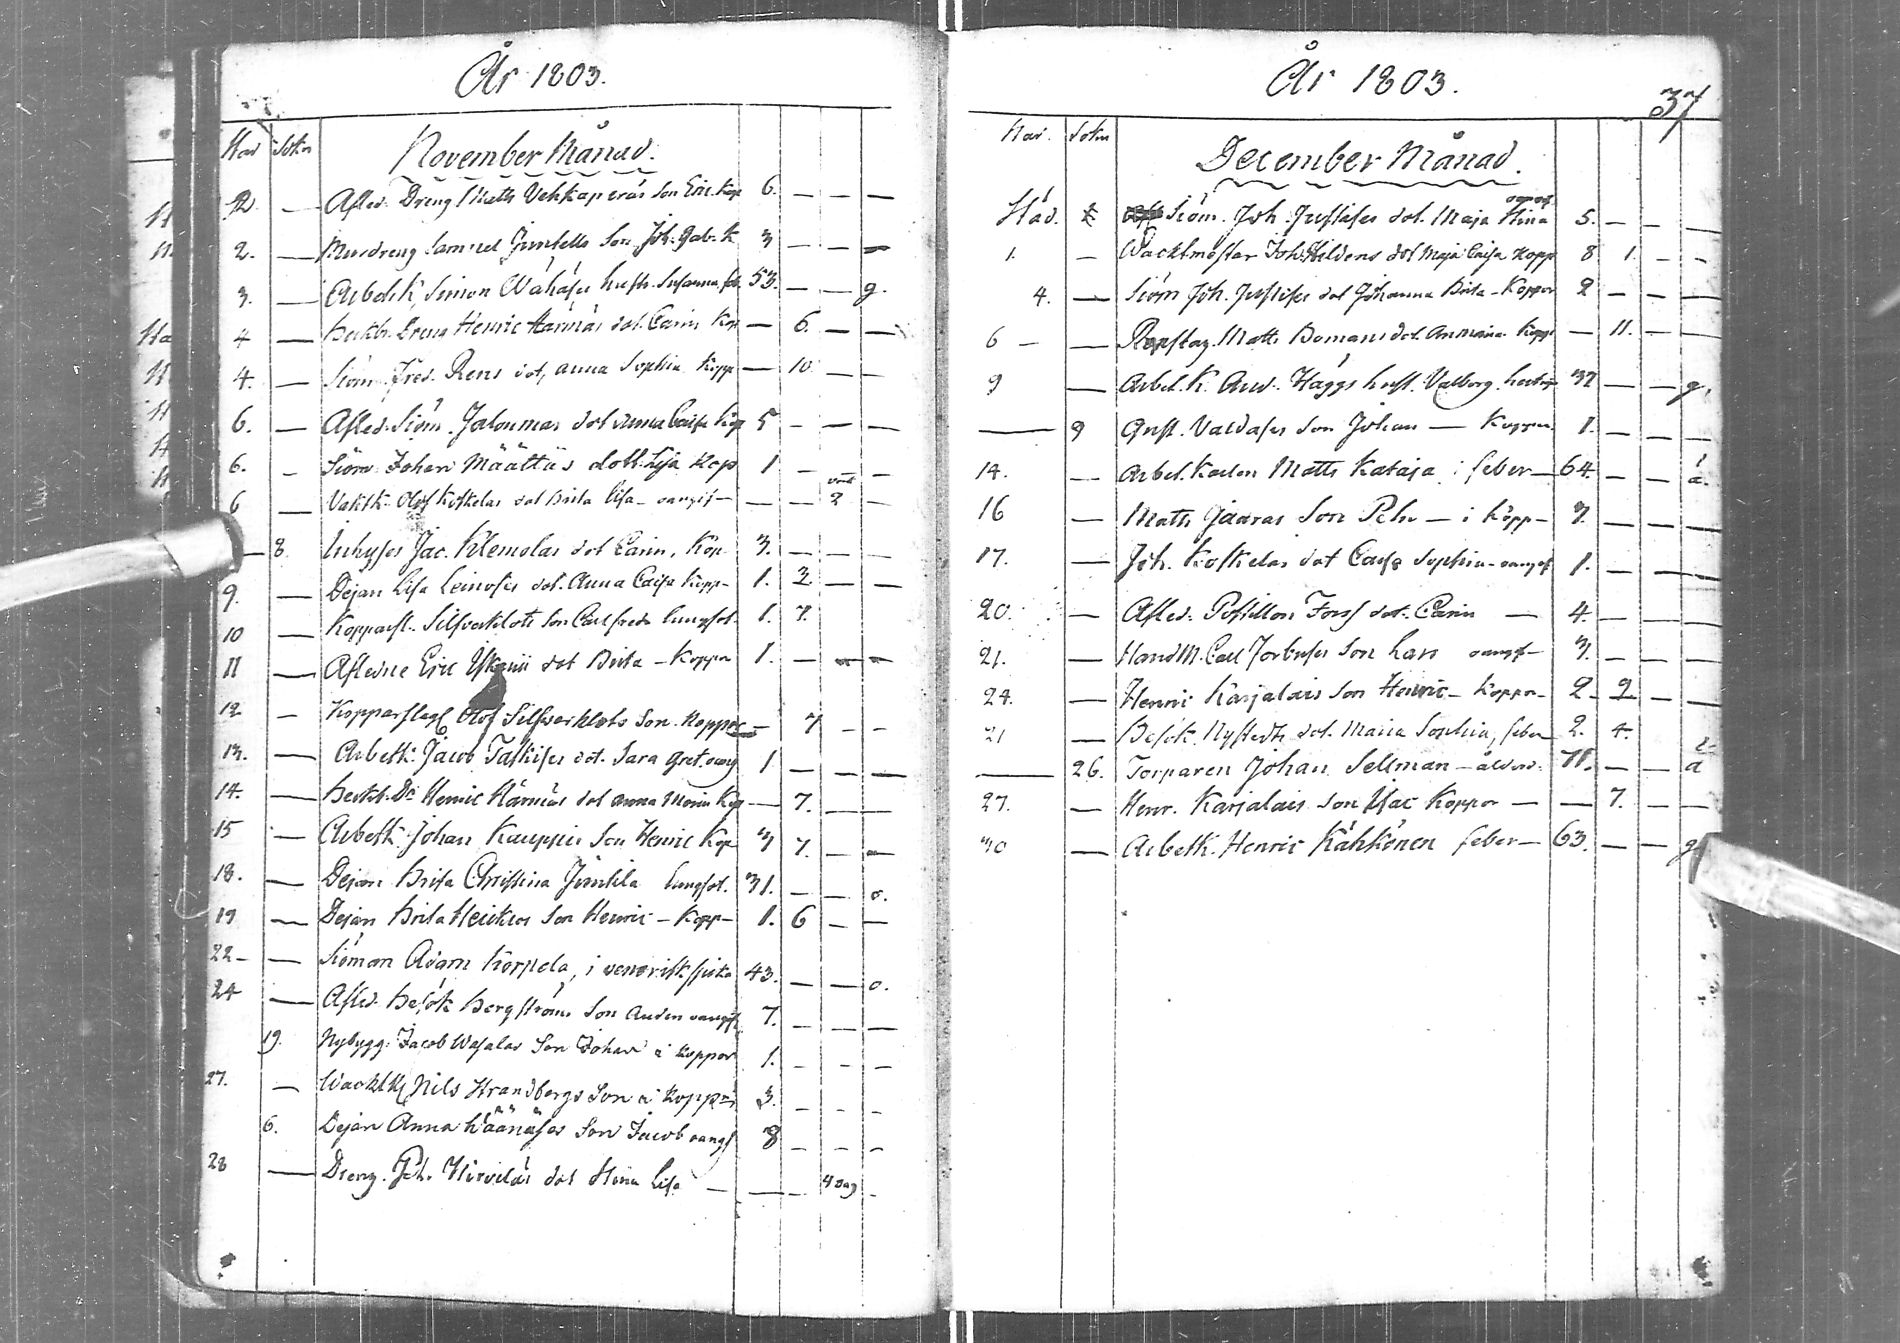 År 1803.
Stad Sokn
November Månad.
2. — Afled. Dreng Matts Vehkaperäs Son Eric. Kop 6. — — —
2. — Murdreng Samuel Junttells Son Joh. Gab. K 3 — — —
3. — Arbetsk Simon Wähäses hustr. Susanna 53. — — g.
4 — Dreng Henric Hannäs dot. Carin Kop — 6. — —
4. — Siöm. Fred. Rens dot, anna Sophia Kopp — 10. — —
6. — Afled. Siöm. dot anna Caisa Kop 5 — — —
6. — Siöm Johan Määttäs dott. Lisa Kop 1 — — —
6 — Vaktk. Olof Koskelas dot Brita Lisa — oangif — — — 2 —
— 8. Inhyses Jac. Klemolas dot Carin, Kop 3. — — —
9. — Dejan Lisa Leinoses dot. Anna Caisa Kopp — 1. 3 — —
10 — Kopparsl. Silfverklots Son Carl Fredr. Lungsot. 1. 7.
11 — Afledne Eric dot Brita — Koppr 1. — — —
12 — Kopparslag Olof Silfverklots Son. Koppor — 7 — —
13. — Arbetk. Jacob dot. Sara Gret. oang 1 — — —
14. — Dr Henric Hännäs dot anna Maria Kop — 7. — —
15 — Arbetk. Johan Kauppis Son Henric Kop 3 7. — —
18. — Dejan Brita Christina Juntila Lungsot. 31. — — o.
19 — Dejan Brita Heickas Son Henric — Kopp — 1. 6 — —
22 — — Siöman Adam Korpela, i venerisk siuka 43. — — o.
24 — Afled. Besök Bergströms Son Anders oangif 7. — — —
19. Nybygg. Jacob Wasalas Son Johan i Koppor 1. — — —
27. — Wacktk Nils Strandbergs Son i Koppor 3. — — —
6. Dejan Anna Son Jacob oangf 8 — — —
28 — Dreng. Joh. Hirveläs dot Stina Lisa — — — 4 dag —
År 1803.
37
Stad. Sokn
December Månad.
oangif
Stad. Siöm. Joh. Justises dot. Maja Stina 5. — — —
1. — Wacktmestar Joh. Hildens dot Maja Caisa Kopp 8 1. — —
4. — Siöm Joh. Justises dot Johanna Brita — Koppor 2 — — —
6 — — Repslag. Matts Bomans dot. Annmaria Kopp — 11. —
9 — Arbet. K. And. Häggs hust. Valborg. 37 — — g.
— 9 Gust. Valdases Son Johan — Koppor 1. — — —
14. — Arbet. Karlen Matts Kataja i feber — 64. — — å.
16 — Matts Jaaras Son Pehr — i Kopp — 7. — — —
17. — Joh. Koskelas dot Caisa Sophia — oangif 1. — — —
20. — Afled. Postillon Forss dot. Carin — 4. — — —
21. — HandM. Carl Son Lars oangf — 3. — — —
24. — Henric Karjalais Son Henric — Koppr — 2 2 — —
21 — Besök. Nystedts dot. Maria Sophia, feber 2. 4. —
— 26. Torparen Johan Sellman — ålderd. 78. — — å
27. — Henr. Karjalais Son Isac Koppor — — 7. — —
30 — Arbetk. Henric Kähkönen feber — 63. — — g.